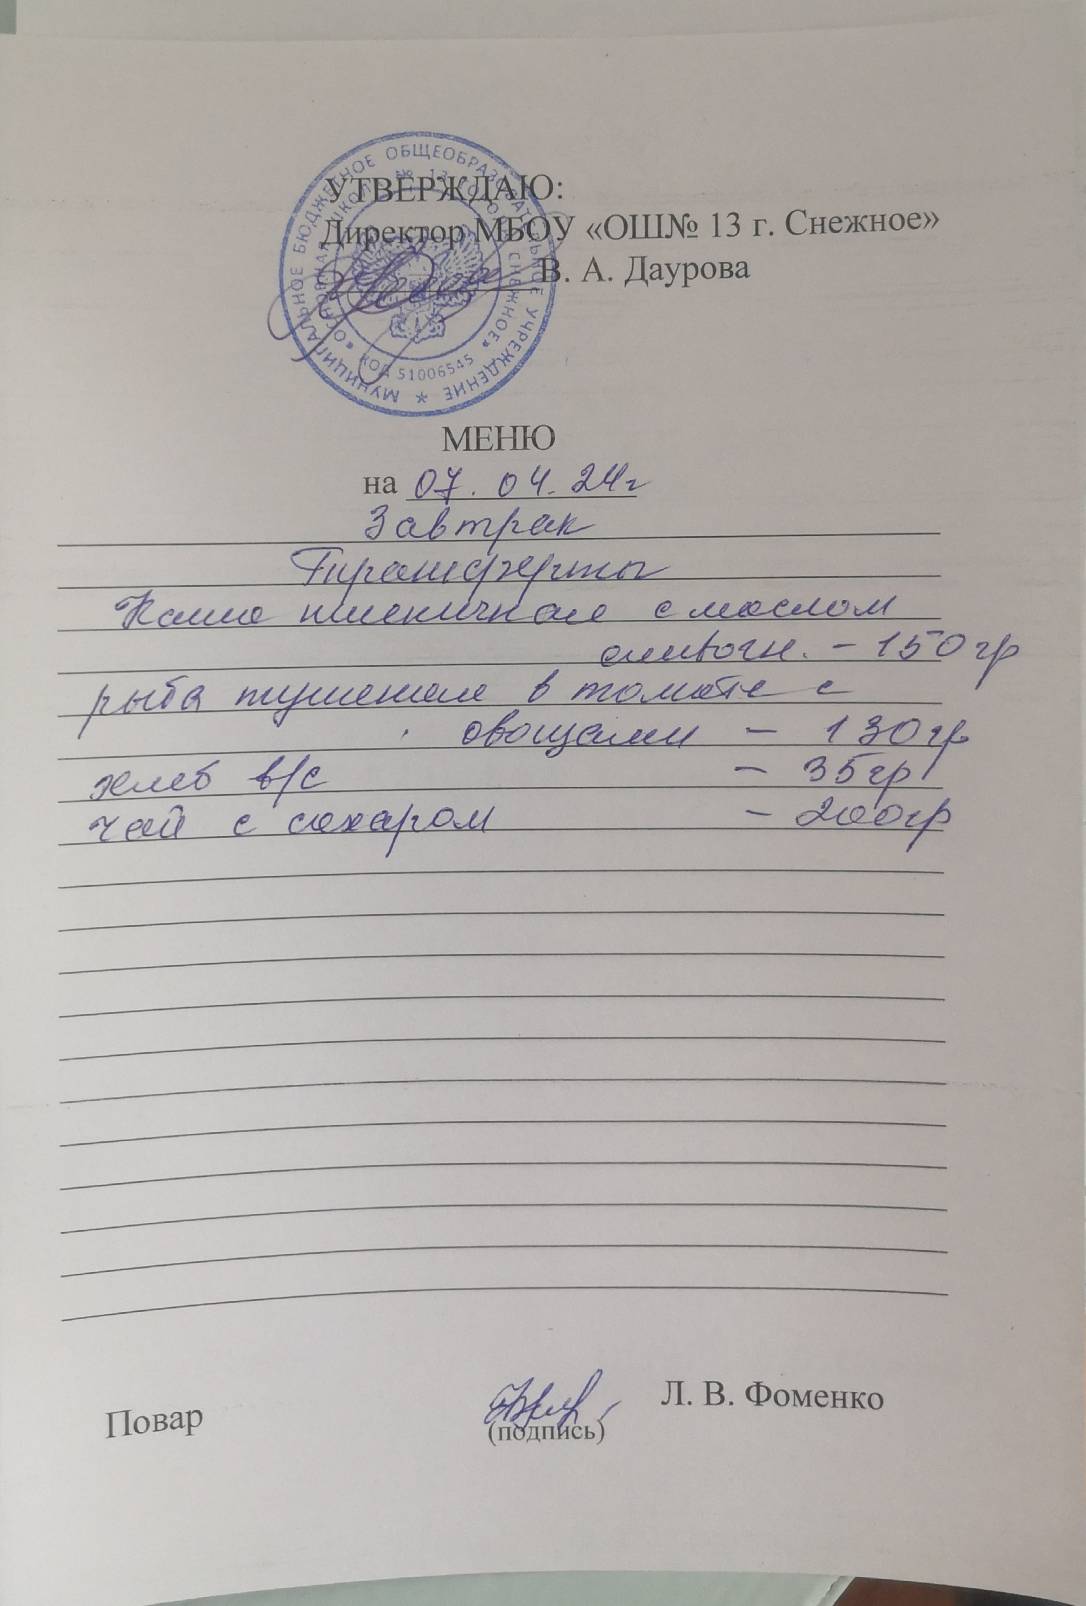 МУНИЦИПАЛЬНОЕ БЮДЖЕТНОЕ ОБЩЕОБРАЗОВАТЕЛЬНОЕ УЧРЕЖДЕНИЕ *
«ОСНОВНАЯ ШКОЛА № 13 ГОРОДА СНЕЖНОЕ»
КОД 51006545
УТВЕРЖДАЮ:
Директор МБОУ «ОШ№ 13 г. Снежное»
В. А. Даурова
МЕНЮ
на 07.04.24г
Завтрак
Каша пшеничная с маслом
сливочн. - 150 гр
рыба тушеная в томате с
овощами - 130гр
хлеб в/с - 35гр
чай с сахаром - 200гр
Повар
Л. В. Фоменко
(подпись)